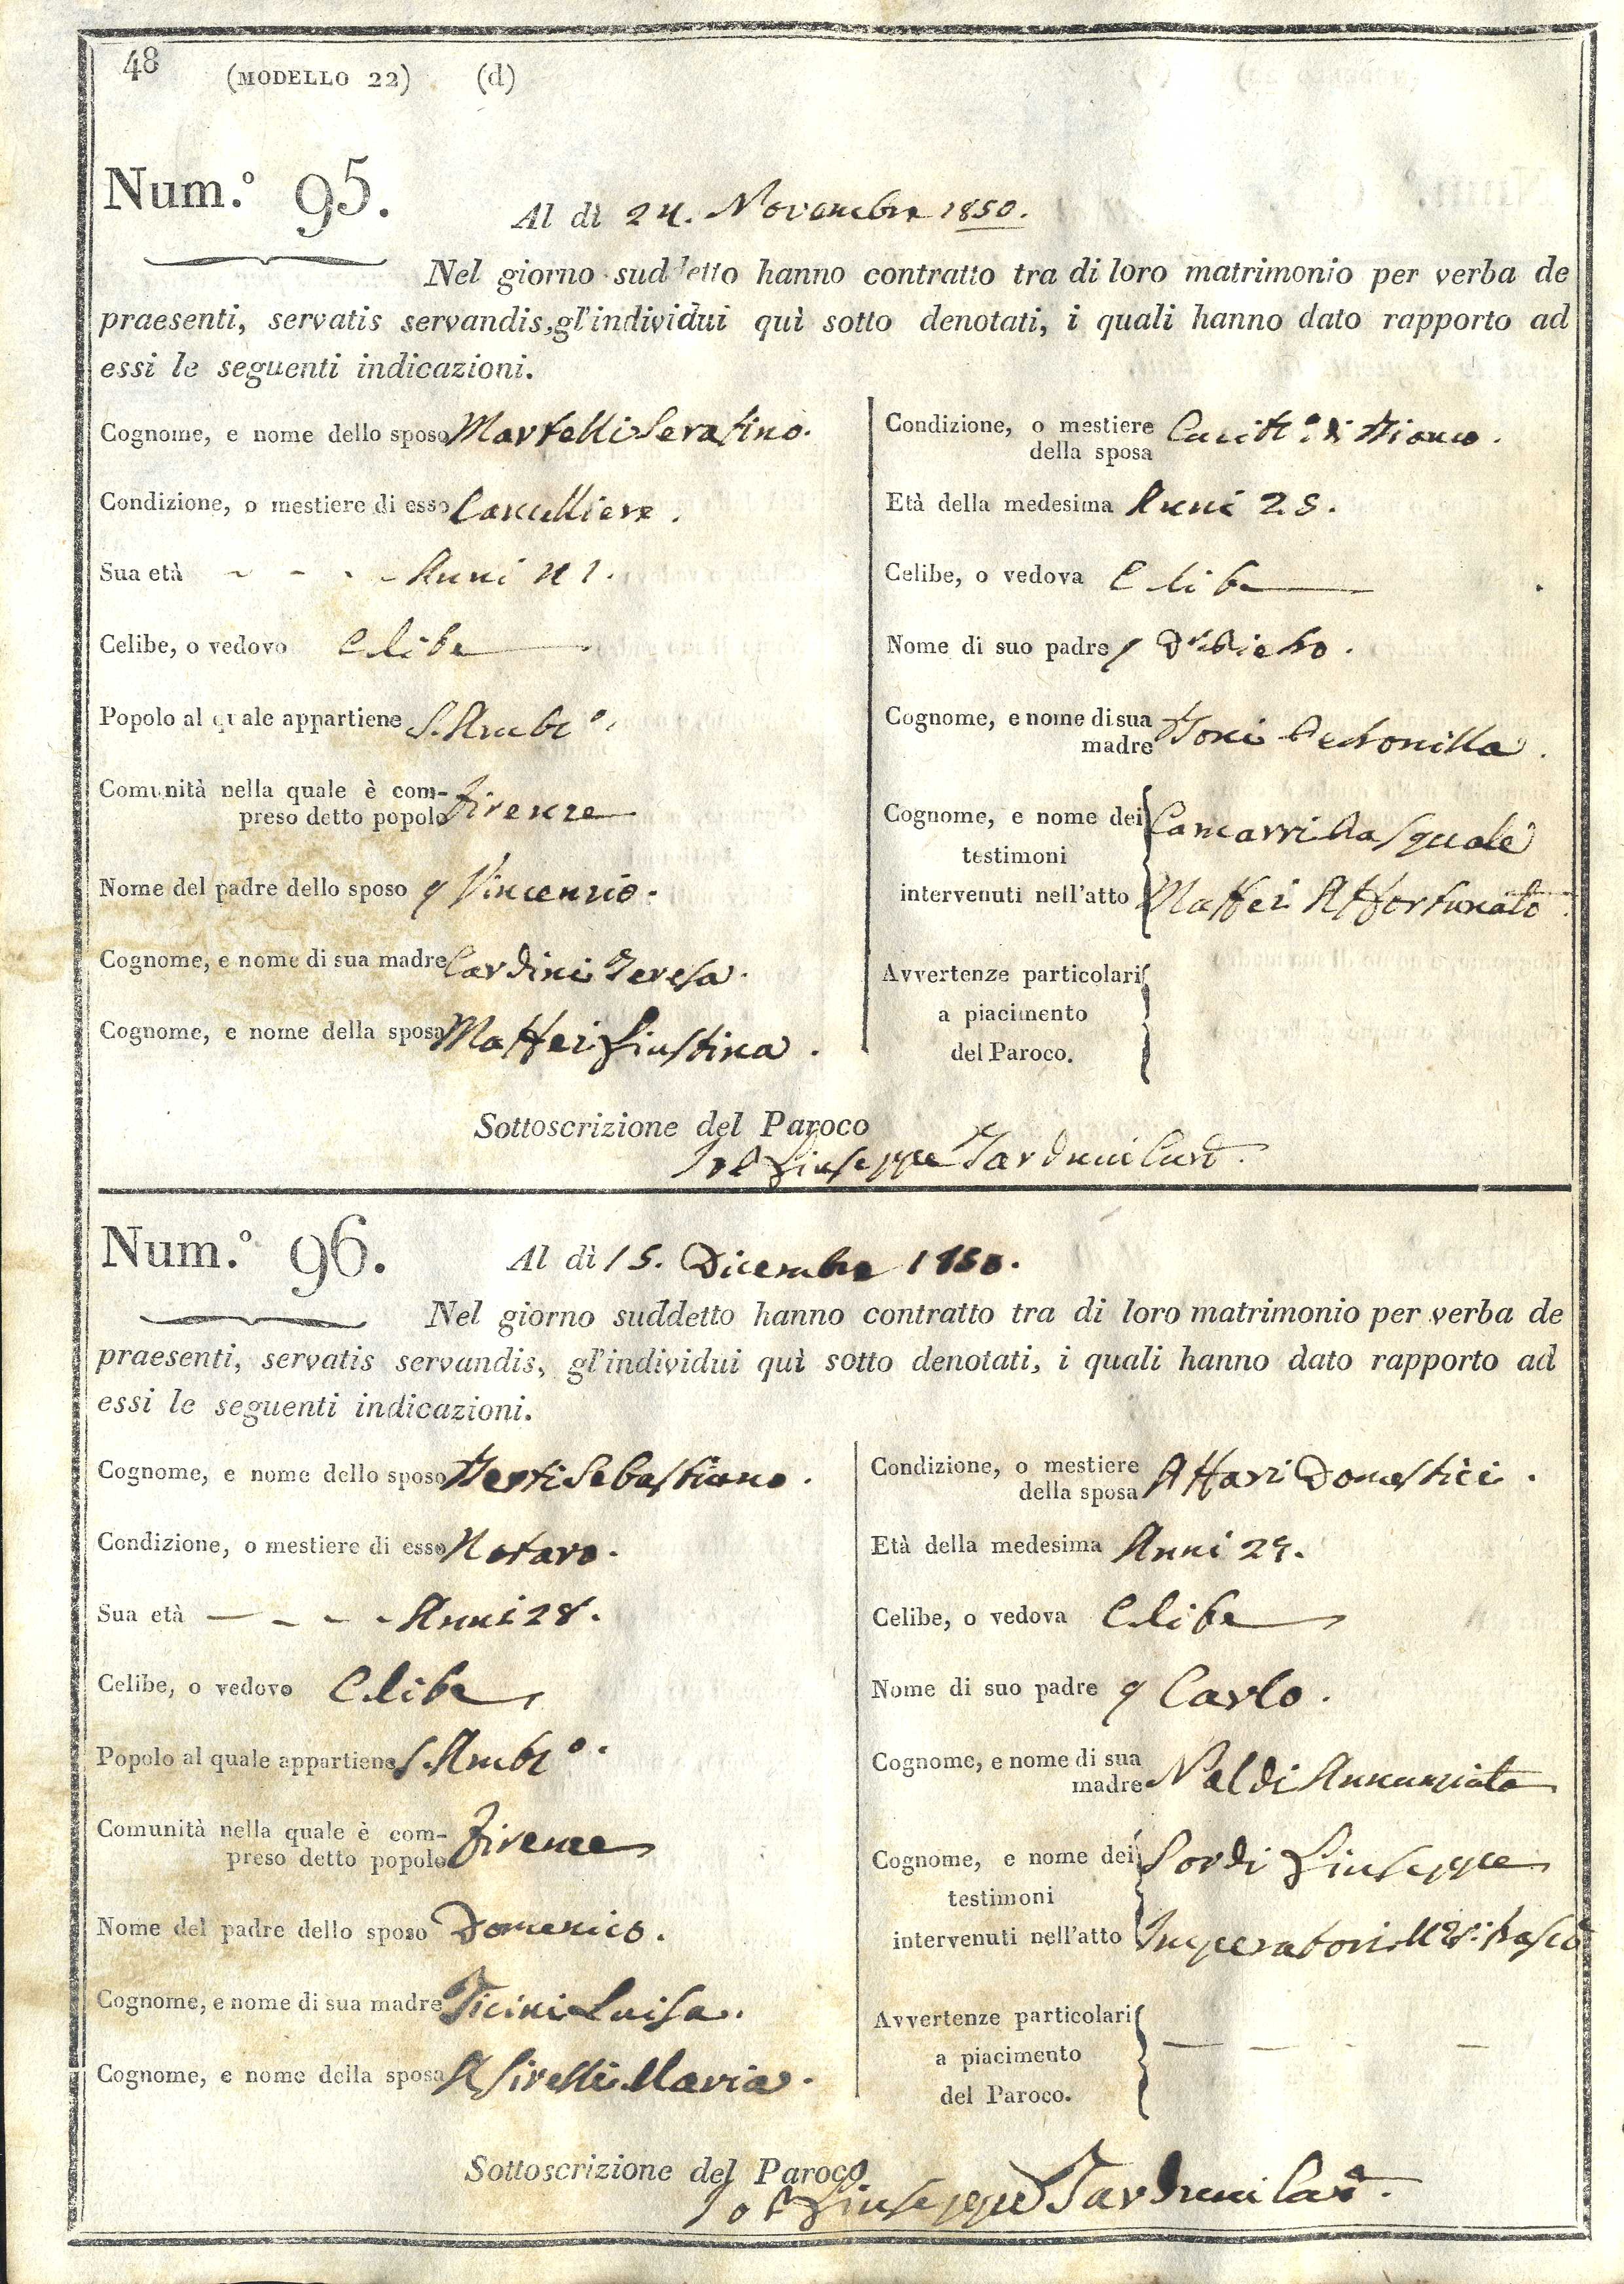 48 (MODELLO 22) (d)
Num.º 95.
Al dì 24. Novembre 1850.
Nel giorno suddetto hanno contratto tra di loro matrimonio per verba de
praesenti, servatis servandis, gl'individui quì sotto denotati, i quali hanno dato rapporto ad
essi le seguenti indicazioni.
Cognome, e nome dello sposo Martelli Serafino.
Condizione, o mestiere di esso Cancelliere.
Sua età - - - - Anni 41.
Celibe, o vedovo Celibe
Popolo al quale appartiene S. Ambrº.
Comunità nella quale è com-
preso detto popolo Firenze
Nome del padre dello sposo q Vincenzio.
Cognome, e nome di sua madre Cardini Teresa.
Cognome, e nome della sposa Maffei Giustina.
Condizione, o mestiere
della sposa di Bianco.
Età della medesima Anni 25.
Celibe, o vedova Celibe
Nome di suo padre
Cognome, e nome di sua
madre Petronilla.
Cognome, e nome dei
testimoni
intervenuti nell'atto
Camarri Pasquale
Maffei Affortunato
Avvertenze particolari
a piacimento
del Paroco.
Sottoscrizione del Paroco
Giuseppe Targ
Num.º 96.
Al dì 15. Dicembre 1850.
Nel giorno suddetto hanno contratto tra di loro matrimonio per verba de
praesenti, servatis servandis, gl'individui quì sotto denotati, i quali hanno dato rapporto ad
essi le seguenti indicazioni.
Cognome, e nome dello sposo Sebastiano.
Condizione, o mestiere di esso Notaro.
Sua età - - - - Anni 28.
Celibe, o vedovo Celibe
Popolo al quale appartiene S. Ambrº.
Comunità nella quale è com-
preso detto popolo Firenze
Nome del padre dello sposo Domenico.
Cognome, e nome di sua madre Ticini Luisa.
Cognome, e nome della sposa Asirelli Maria.
Condizione, o mestiere
della sposa Affari Domestici.
Età della medesima Anni 29.
Celibe, o vedova Celibe
Nome di suo padre q Carlo.
Cognome, e nome di sua
madre Naldi Annunziata
Cognome, e nome dei
testimoni
intervenuti nell'atto
Sordi Giuseppe
Imperatori
Avvertenze particolari
a piacimento
del Paroco.
- - - - -
Sottoscrizione del Paroco
Giuseppe